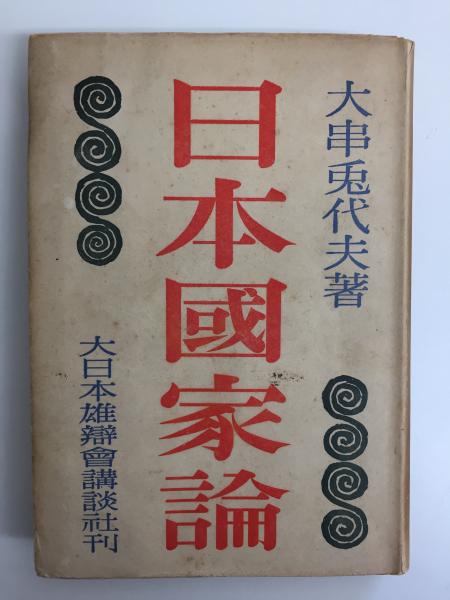 大串兎代夫著
日本國家論
大日本雄辯會講談社刊